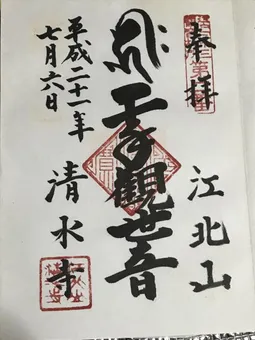 奉拝
江北山
千手観世音
清水寺
平成二十一年
七月六日